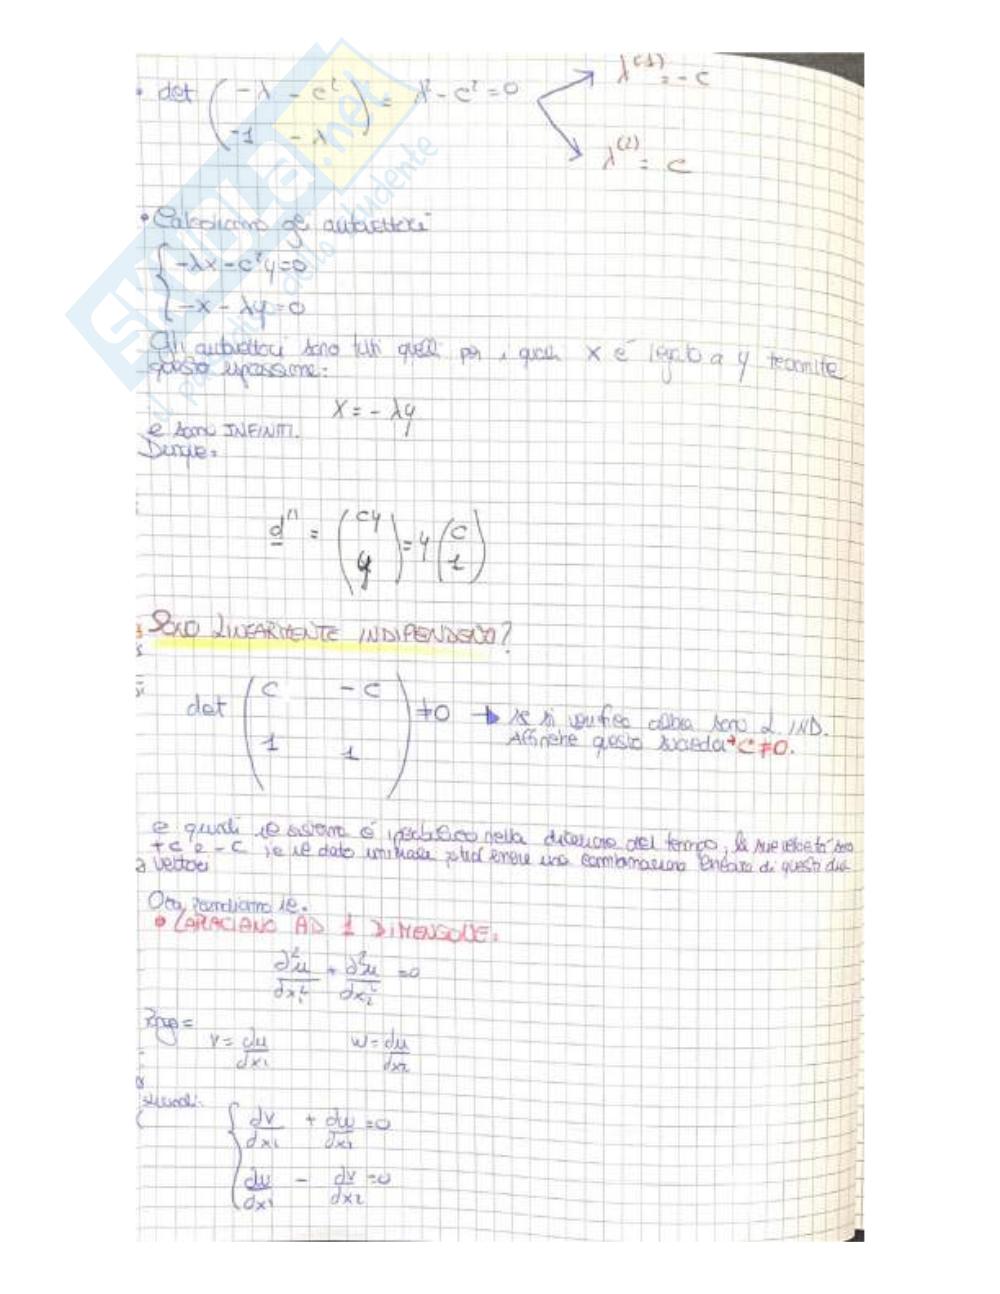 • det (-λ -c² -1 -λ) = λ² - c² = 0
λ⁽¹⁾ = -c
λ⁽²⁾ = c
SKUOLA.net
• Calcoliamo gli autovettori
{-λx - c²y = 0
-x - λy = 0
Gli autovettori sono tutti quelli per i quali x è legato a y tramite
questa espressione:
x = -λy
e sono INFINITI.
Dunque:
d⁽¹⁾ = (cy y) = y (c 1)
SONO LINEARMENTE INDIPENDENTI?
det (c -c 1 1) ≠ 0 → se si verifica allora sono L. IND.
Affinché questo succeda → c ≠ 0.
e quindi il sistema è iperbolico nella direzione del tempo, le sue velocità sono
+c e -c, e il dato iniziale potrà essere una combinazione lineare di questi due
vettori
Ora, prendiamo il:
• LAPLACIANO AD 1 DIMENSIONE:
∂²u/∂x₁² + ∂²u/∂x₂² = 0
Pongo =
v = du/dx₁ w = du/dx₂
{dv/dx₁ + dw/dx₂ = 0
dw/dx₁ - dv/dx₂ = 0